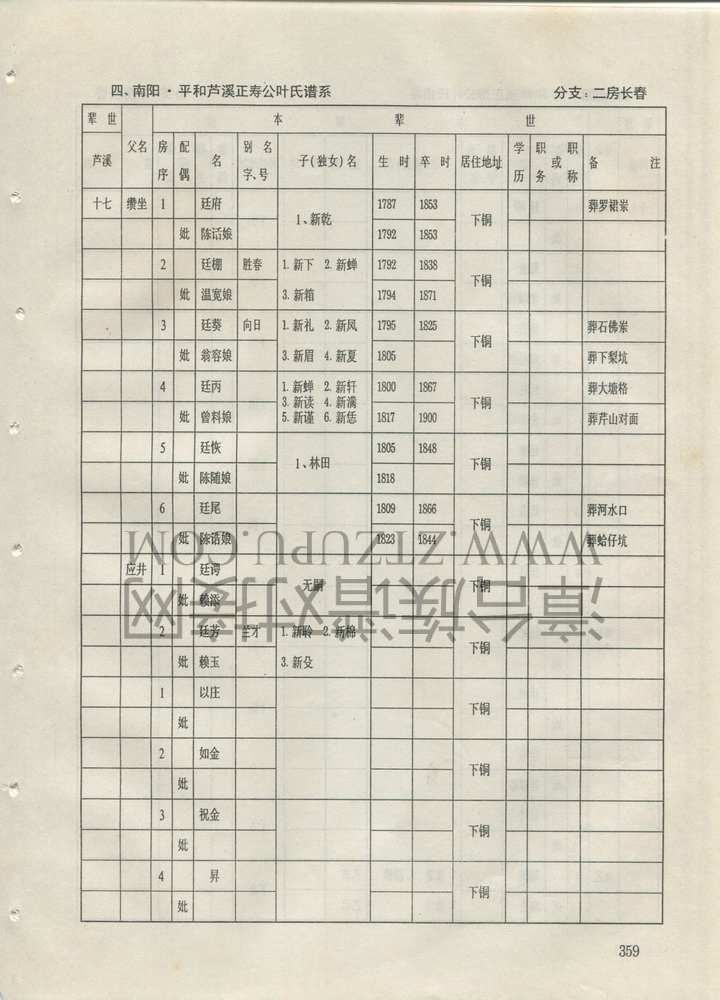 四、南阳·平和芦溪正寿公叶氏谱系 分支:二房长春
辈世 本 辈 世
芦溪 父名 房序 配偶 名 别名字、号 子(独女)名 生时 卒时 居住地址 学历 职务或职称 备注
十七 缵坐 1 廷府 1、新乾 1787 1853 下铜 葬罗裙岽
妣 陈话娘 1792 1853
2 廷棚 胜春 1.新下 2.新蝉 1792 1838 下铜
妣 温宽娘 3.新箱 1794 1871
3 廷葵 向日 1.新礼 2.新凤 1795 1825 下铜 葬石佛岽
妣 翁容娘 3.新眉 4.新夏 1805 葬下梨坑
4 廷丙 1.新蝉 2.新轩 1800 1867 下铜 葬大塘格
3.新读 4.新满
妣 曾料娘 5.新谨 6.新恁 1817 1900 葬芹山对面
5 廷恢 1、林田 1805 1848 下铜
妣 陈随娘 1818
6 廷尾 1809 1866 下铜 葬河水口
妣 陈诰娘 1823 1844 葬蛤仔坑
应井 1 廷谔 无嗣 下铜
妣 赖添
2 廷芳 兰才 1.新聆 2.新棉 下铜
妣 赖玉 3.新殳
1 以庄 下铜
妣
2 如金 下铜
妣
3 祝金 下铜
妣
4 昇 下铜
妣
359
漳台族谱对接网
WWW.ZTZUPU.COM